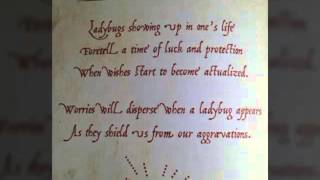 Ladybugs showing up in one's life
Foretell a time of luck and protection
When wishes start to become actualized.
Worries will disperse when a ladybug appears
As they shield us from our aggravations.